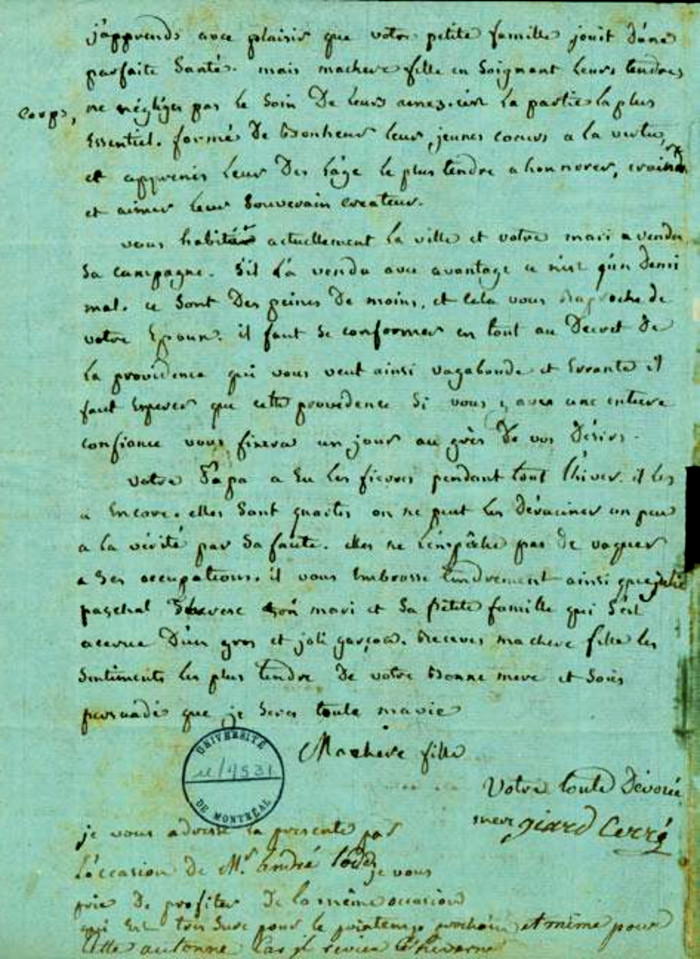 j'apprends avec plaisir que votre petite famille jouit d'une
parfaite santé. mais machere fille en soignant leurs tendres
corps, ne négliges pas le soin De leurs ames. c'est la partie la plus
Essentiel. formé De bonheur leur jeunes coeurs a la vertu,
et apprenés leur Des l'âge le plus tendre a honnorer, craindre
et aimer leur souverain createur.
vous habités actuellement la ville et votre mari a vendu
sa campagne. s'il l'a vendu avec avantage ce n'est qu'un demi
mal. ce sont Des peines De moins, et cela vous raproche de
votre Epoux. il faut se conformer en tout au Decret De
la providence qui vous veut ainsi vagabonde et Errante il
faut Esperer que cette providence si vous y avez une entiere
confiance vous fixera un jour au grès De vos Désirs.
votre Papa a Eu les fievres pendant tout l'hiver. il les
a Encore. elles sont quartes on ne peut les Déraciner un peu
a la vérité par sa faute. elles ne l'enpêche pas de vaquer
a ses occupations. il vous Embrasse tendrement ainsi que julie
paschal son mari et sa petite famille qui s'est
accrue D'un gros et joli garçon. Recevez machere fille les
sentiments les plus tendre De votre Bonne mere et soiés
persuadé que je serez toute mavie
Machere fille
Votre toute Dévouée
mere giard Cerré
UNIVERSITÉ
DE MONTRÉAL
je vous adresse la presente par
l'occasion de Mr. andré je vous
prie De profiter De la même occasion
qui Est très sure pour le printemps prochain et même pour
cette automne